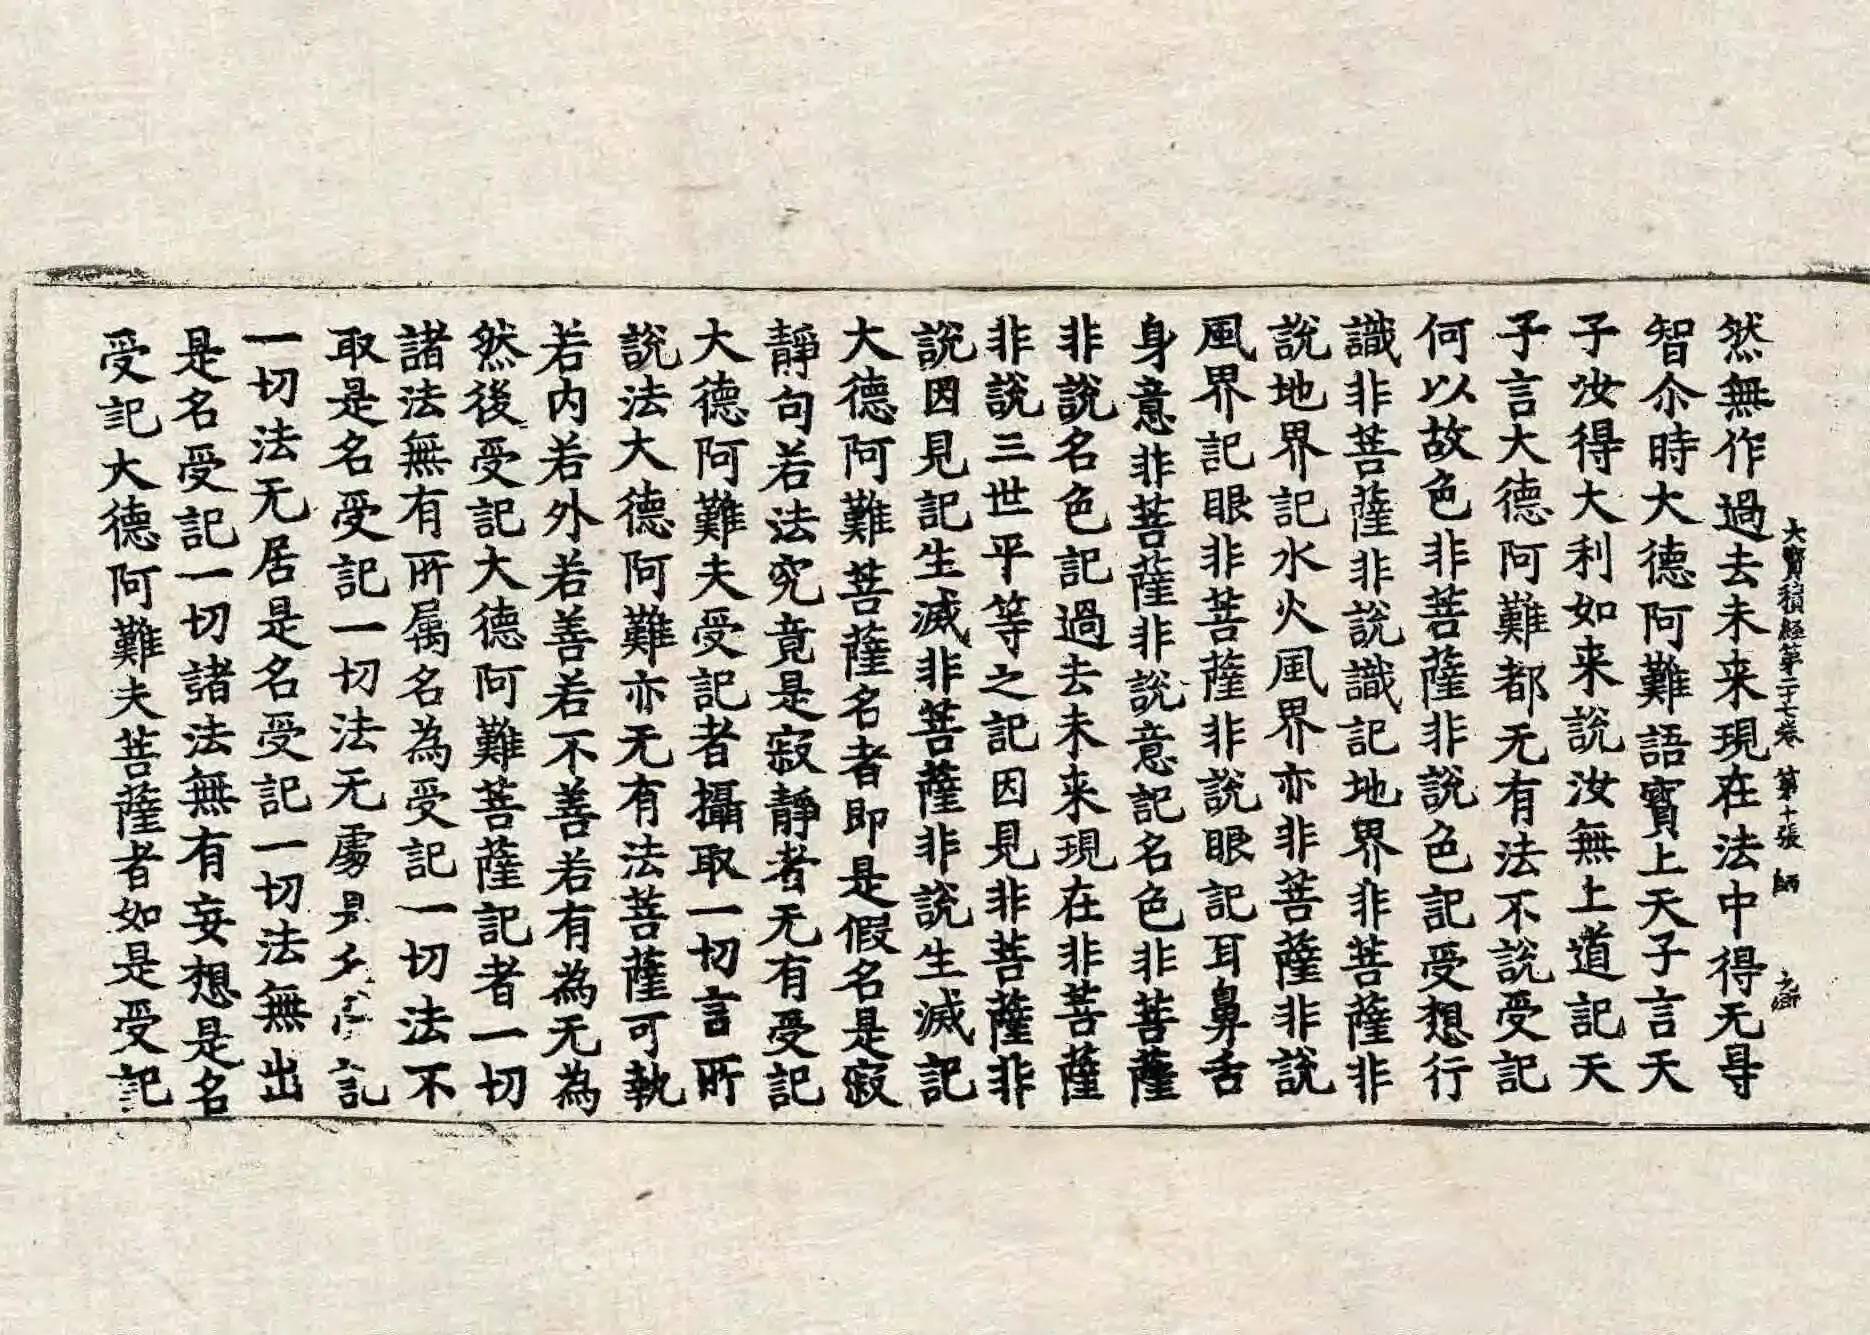 大寶積經第二十七卷　第十張　師
然無作過去未来現在法中得无㝵
智尒時大德阿難語寶上天子言天
子汝得大利如来說汝無上道記天
子言大德阿難都无有法不說受記
何以故色非菩薩非說色記受想行
識非菩薩非說識記地界非菩薩非
說地界記水火風界亦非菩薩非說
風界記眼非菩薩非說眼記耳鼻舌
身意非菩薩非說意記名色非菩薩
非說名色記過去未来現在非菩薩
非說三世平等之記因見非菩薩非
說因見記生滅非菩薩非說生滅記
大德阿難菩薩名者即是假名是寂
靜句若法究竟是寂靜者无有受記
大德阿難夫受記者攝取一切言所
說法大德阿難亦无有法菩薩可執
若内若外若善若不善若有為无為
然後受記大德阿難菩薩記者一切
諸法無有所属名為受記一切法不
取是名受記一切法无處是名受記
一切法无居是名受記一切法無出
是名受記一切諸法無有妄想是名
受記大德阿難夫菩薩者如是受記